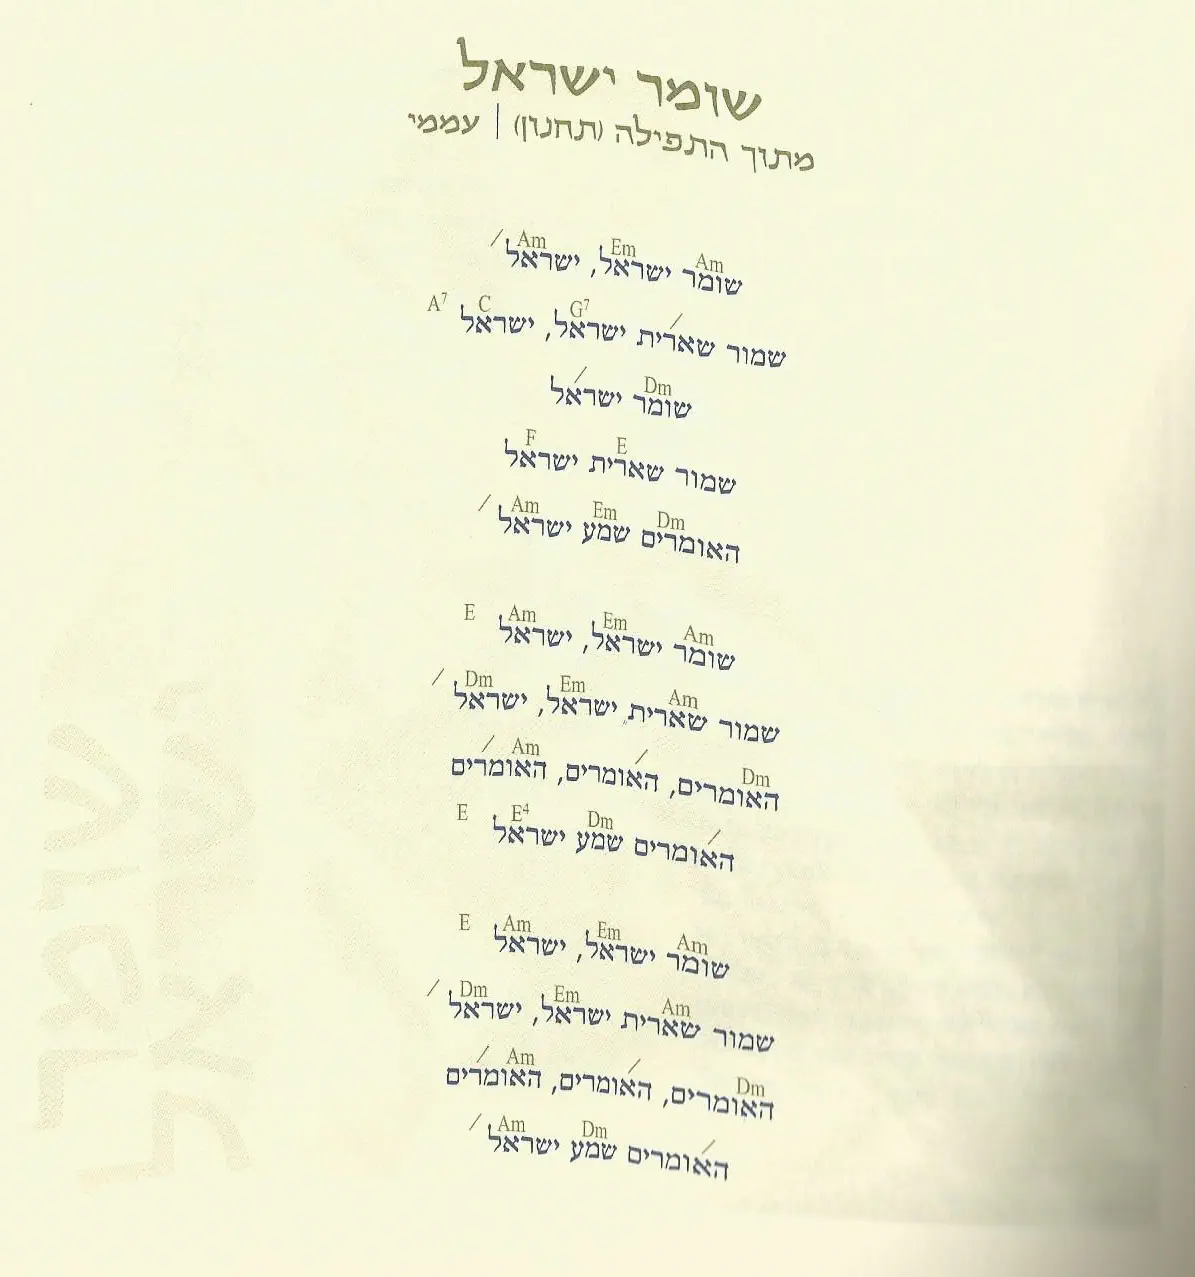 שומר ישראל
מתוך התפילה (תחנון) | עממי
Am Em Am /
שומר ישראל, ישראל
/ G7 C A7
שמור שארית ישראל, ישראל
Dm /
שומר ישראל
E F
שמור שארית ישראל
Dm Em Am /
האומרים שמע ישראל
Am Em Am E
שומר ישראל, ישראל
Am Em Dm /
שמור שארית ישראל, ישראל
Dm / Am /
האומרים, האומרים, האומרים
/ Dm E4 E
האומרים שמע ישראל
Am Em Am E
שומר ישראל, ישראל
Am Em Dm /
שמור שארית ישראל, ישראל
Dm / Am /
האומרים, האומרים, האומרים
/ Dm Am /
האומרים שמע ישראל